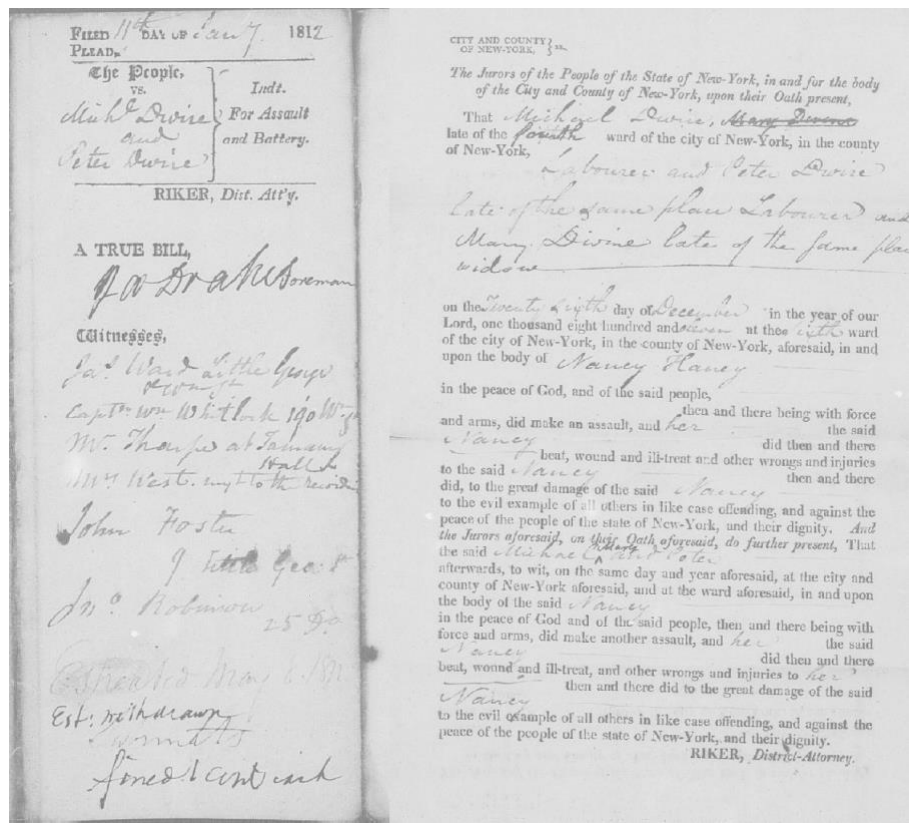 FILED 11th DAY OF Jany. 1812
PLEAD.
The People,
vs.
Michl Dwire
and
Peter Dwire
Indt.
For Assault
and Battery.
RIKER, Dist. Att'y.
A TRUE BILL,
J W Drake Foreman
Witnesses,
Jas. Ward Little George
Captn Wm Whitlock 190 Wm St
Mr. Tharpe at Tammany
Hall
Mrs West
John Foster
9 Little Geo: St
Jno. Robinson
25 Do.
Estreated May
Est: withdrawn
fined 1 cent each
CITY AND COUNTY
OF NEW-YORK, } ss.
The Jurors of the People of the State of New-York, in and for the body
of the City and County of New-York, upon their Oath present,
That Michael Dwire, Mary Devine
late of the fourth ward of the city of New-York, in the county
of New-York,
Labourer and Peter Dwire
late of the same place Labourer and
Mary Divine late of the same place
widow
on the Twenty sixth day of December in the year of our
Lord, one thousand eight hundred and eleven at the sixth ward
of the city of New-York, in the county of New-York, aforesaid, in and
upon the body of Nancy Haney
in the peace of God, and of the said people,
then and there being with force
and arms, did make an assault, and her the said
Nancy did then and there
beat, wound and ill-treat and other wrongs and injuries
to the said Nancy then and there
did, to the great damage of the said Nancy
to the evil example of all others in like case offending, and against the
peace of the people of the state of New-York, and their dignity. And
the Jurors aforesaid, on their Oath aforesaid, do further present, That
the said Michael Mary and Peter
afterwards, to wit, on the same day and year aforesaid, at the city and
county of New-York aforesaid, and at the ward aforesaid, in and upon
the body of the said Nancy
in the peace of God and of the said people, then and there being with
force and arms, did make another assault, and her the said
Nancy did then and there
beat, wound and ill-treat, and other wrongs and injuries to her
then and there did to the great damage of the said
Nancy
to the evil example of all others in like case offending, and against the
peace of the people of the state of New-York, and their dignity.
RIKER, District-Attorney.